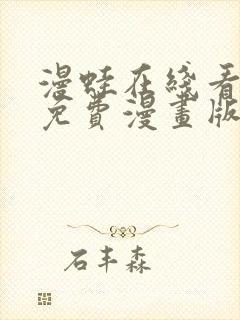 漫蛙在綫看
免費漫畫版
石丰森